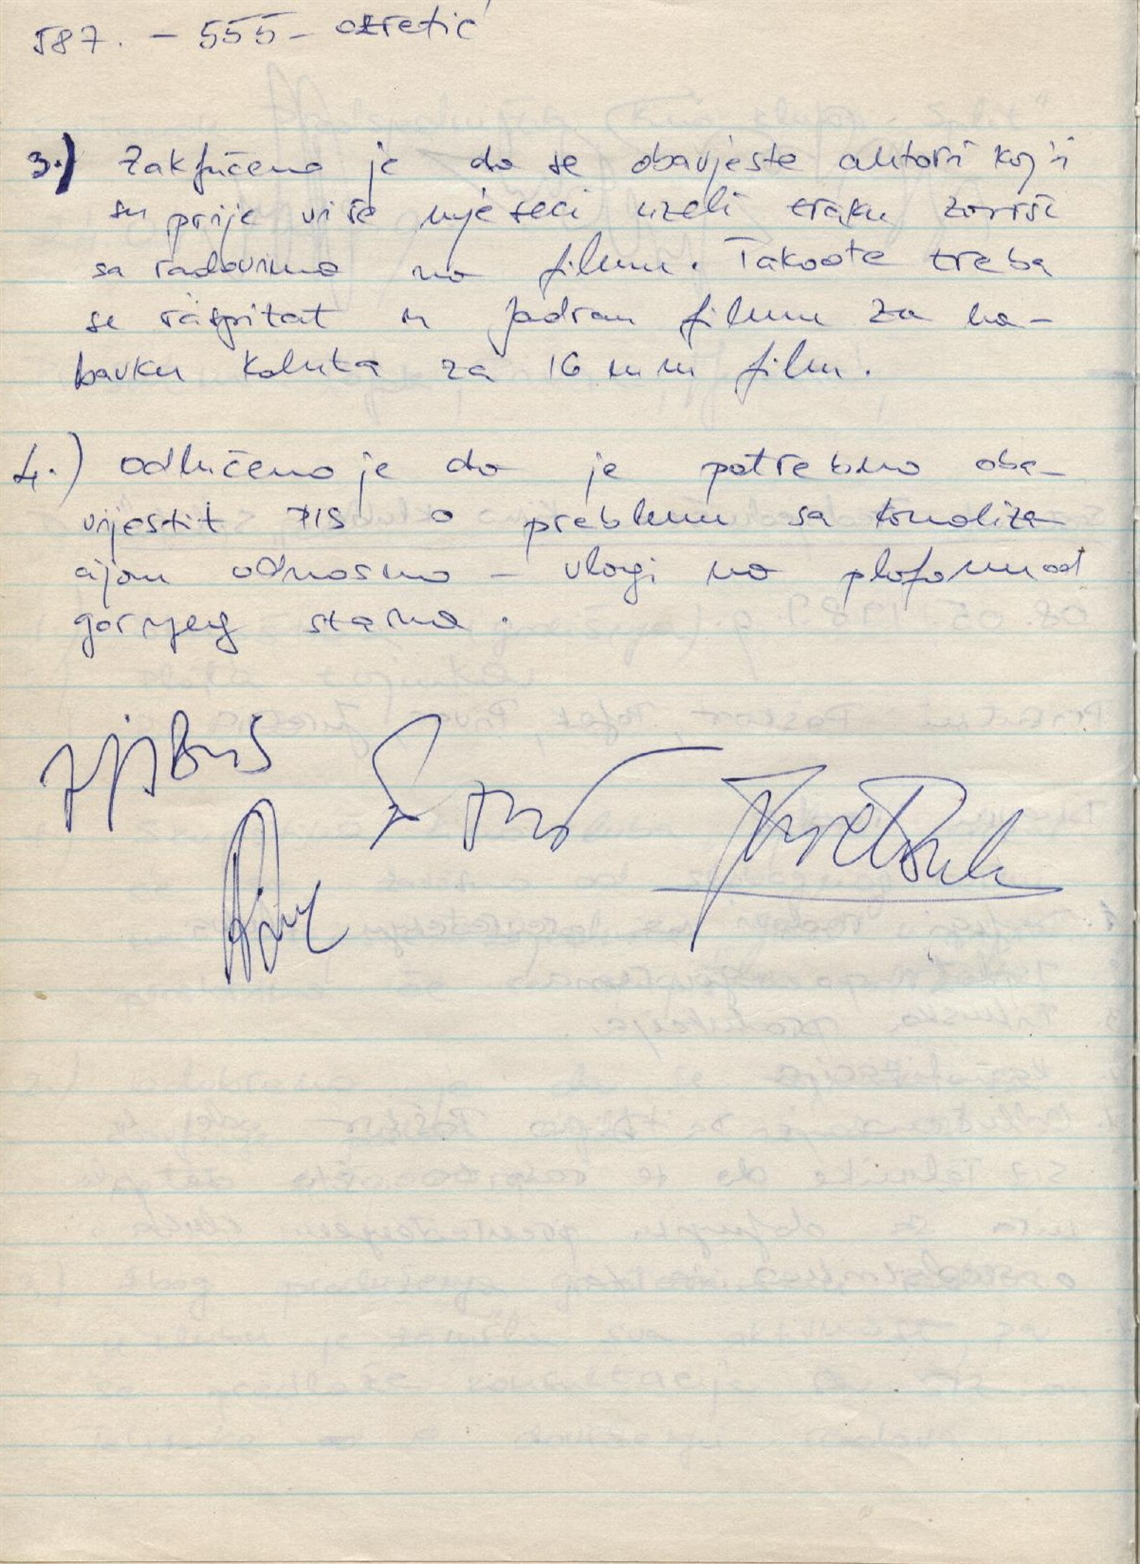 587. - 555 - ozretić
3.) Zaključeno je da se obavjeste autori koji
su prije više mjeseci uzeli traku završe
sa radovima na filmu. Takođe treba
se raspitat u Jadran filmu za na-
bavku koluta za 16 mm film.
4.) Odlučeno je da je potrebno oba-
vijestit o problemu sa kanaliza
cijom odnosno - vlagi na plafonu od
gornjeg stana.